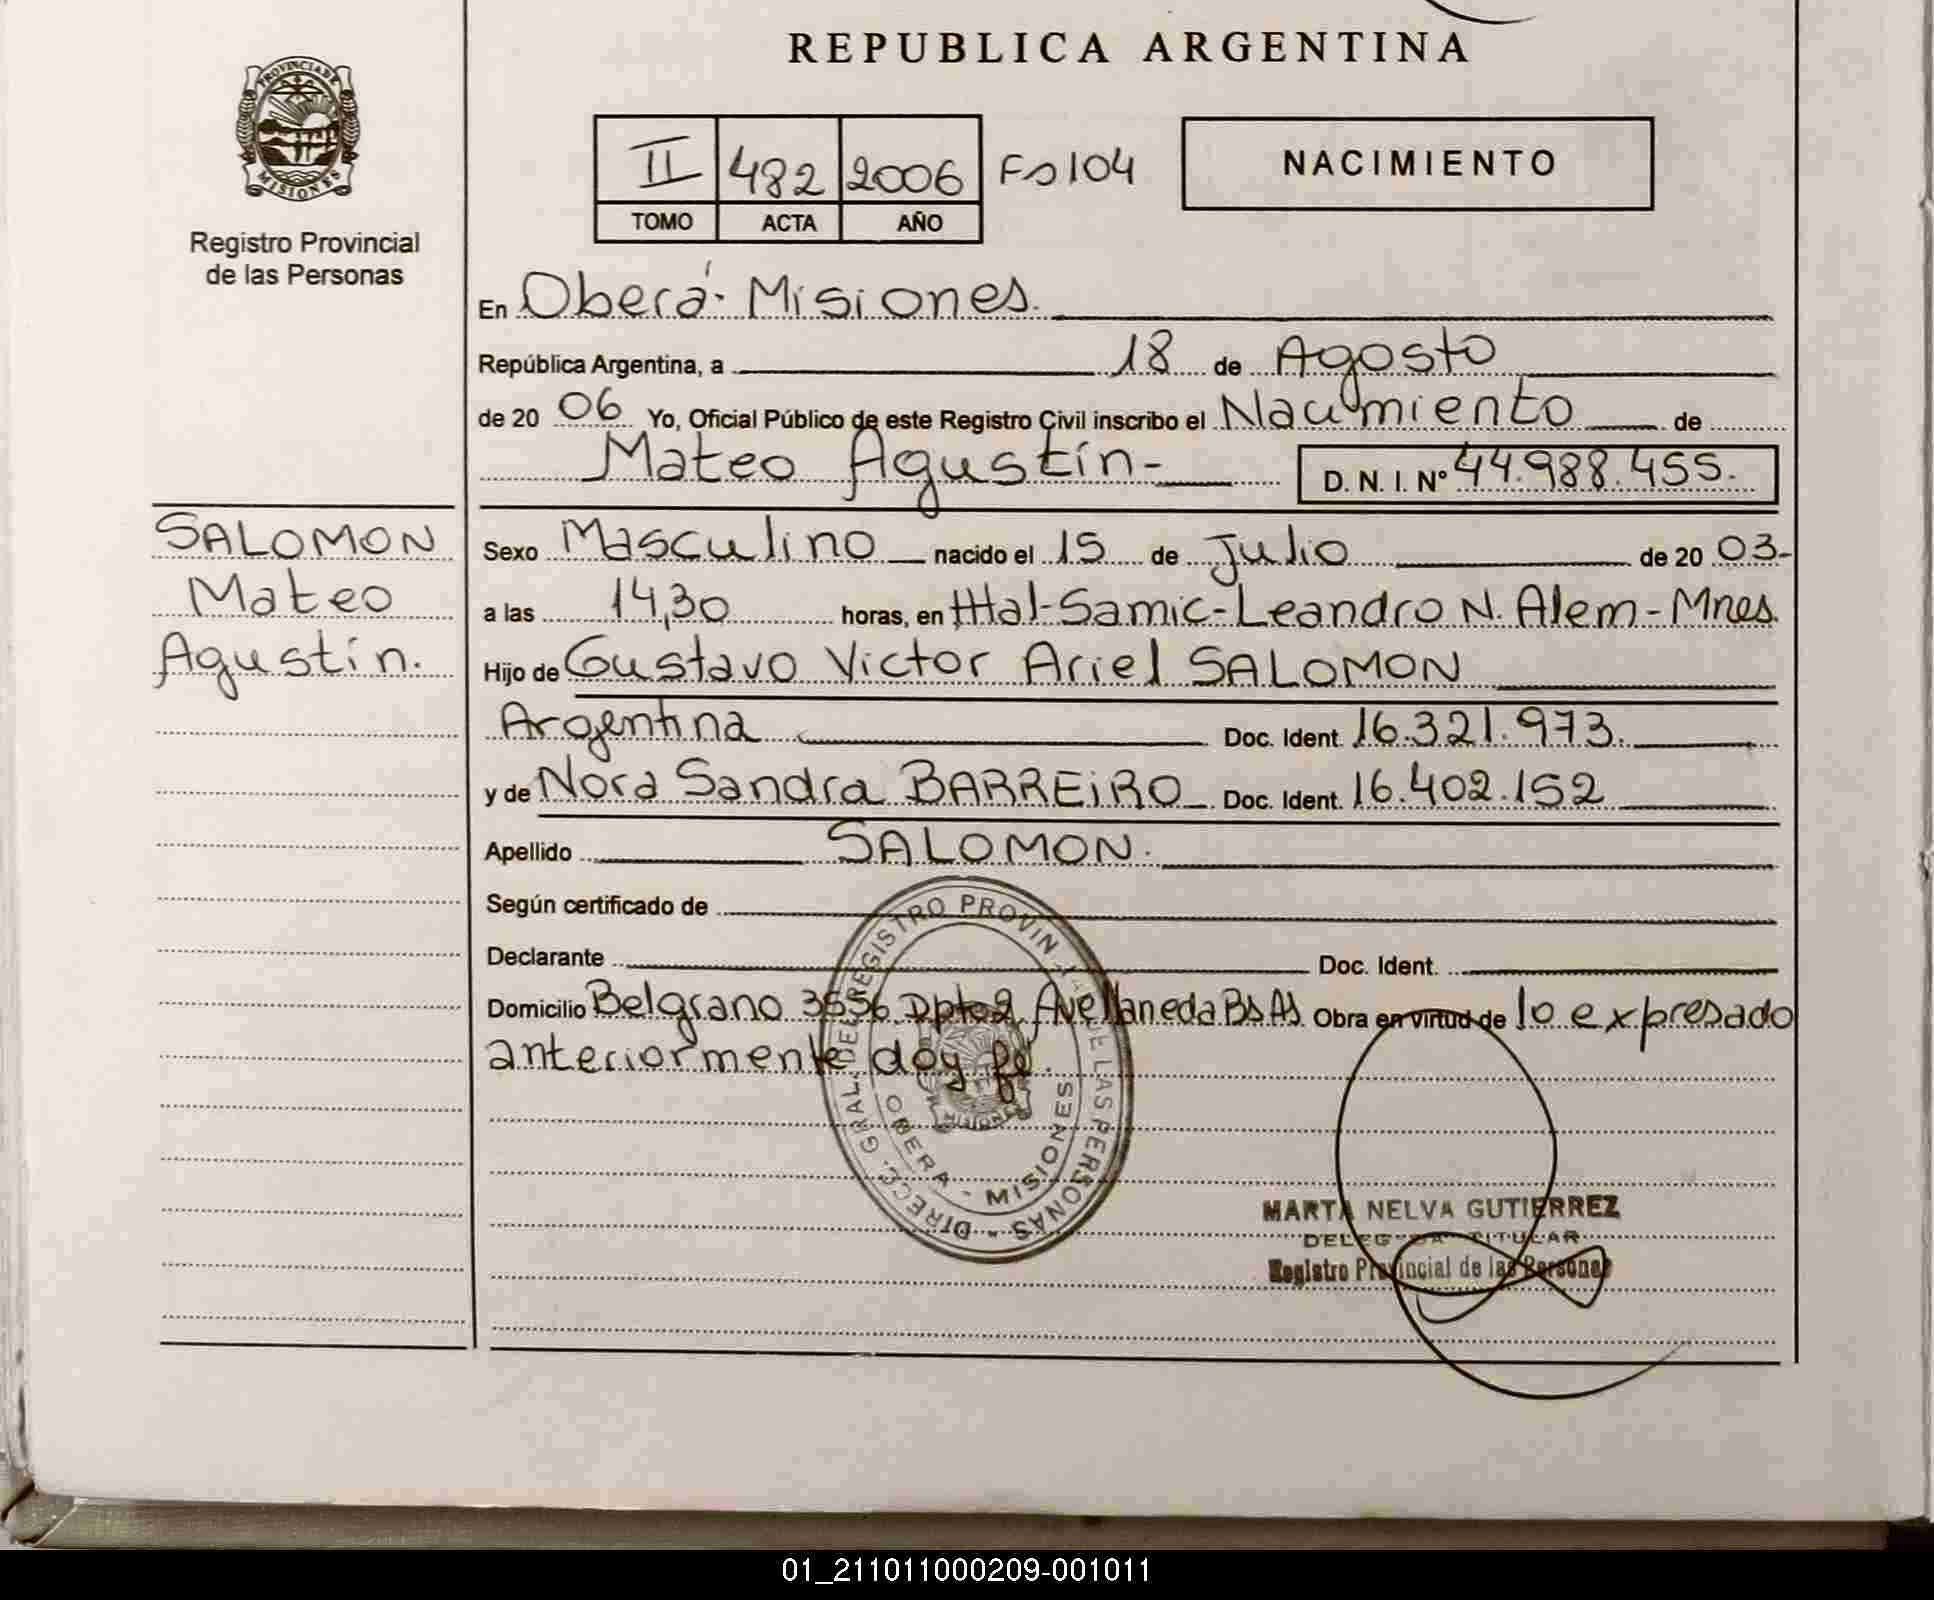 REPUBLICA ARGENTINA
PROVINCIA DE
MISIONES
Registro Provincial
de las Personas
II 482 2006 Fo 104
TOMO ACTA AÑO
NACIMIENTO
En Oberá - Misiones.
República Argentina, a 18 de Agosto
de 20 06 Yo, Oficial Público de este Registro Civil inscribo el Nacimiento de
Mateo Agustín- D. N. I. Nº 44.988.455.
SALOMON
Mateo
Agustín.
Sexo Masculino nacido el 15 de Julio de 20 03-
a las 14,30 horas, en Htal-Samic-Leandro N. Alem-Mnes.
Hijo de Gustavo Victor Ariel SALOMON
Argentina Doc. Ident. 16.321.973.
y de Nora Sandra BARREiRO Doc. Ident. 16.402.152
Apellido SALOMON.
Según certificado de
Declarante Doc. Ident.
Domicilio Belgrano 3556 Dpto 2 Avellaneda Bs As Obra en virtud de lo expresado
anteriormente doy fé.
DIRECC. GRAL. DEL REGISTRO PROVIN DE LAS PERSONAS
OBERA - MISIONES
MISIONES
MARTA NELVA GUTIERREZ
TITULAR
Registro Provincial de las Personas
01_211011000209-001011